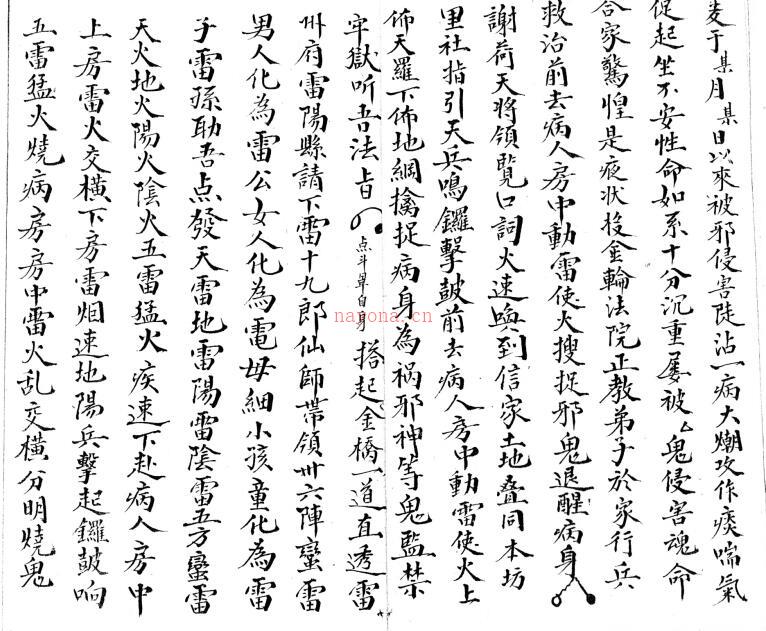 于某月某日以來被邪侵害陡沾一病大潮攻作痰喘氣
促起坐不安性命如系十分沉重屡被厶鬼侵害魂命
合家驚惶是夜状投金輪法院正教弟子於家行兵
救治前去病人房中動雷使火搜捉邪鬼退醒病身
謝荷天将領覧口詞火速喚到信家土地叠同本坊
里社指引天兵鳴鑼擊鼓前去病人房中動雷使火上
佈天羅下佈地網擒捉病身為禍邪神等鬼監禁
牢獄听吾法旨 点斗罩自身 搭起金橋一道直透雷
卅府雷陽縣請下雷十九郎仙師帶領卅六陣蛮雷
男人化為雷公女人化為電母細小孩童化為雷
子雷孫助吾点發天雷地雷陽雷陰雷五方蛮雷
天火地火陽火陰火五雷猛火疾速下赴病人房中
上房雷火交横下房雷烟速地陽兵擊起鑼鼓响
五雷猛火燒病房房中雷火乱交橫分明燒鬼
nayona.cn